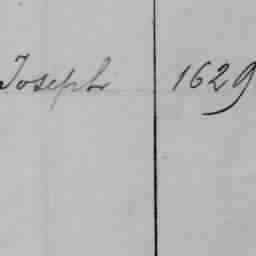 Joseph 1629